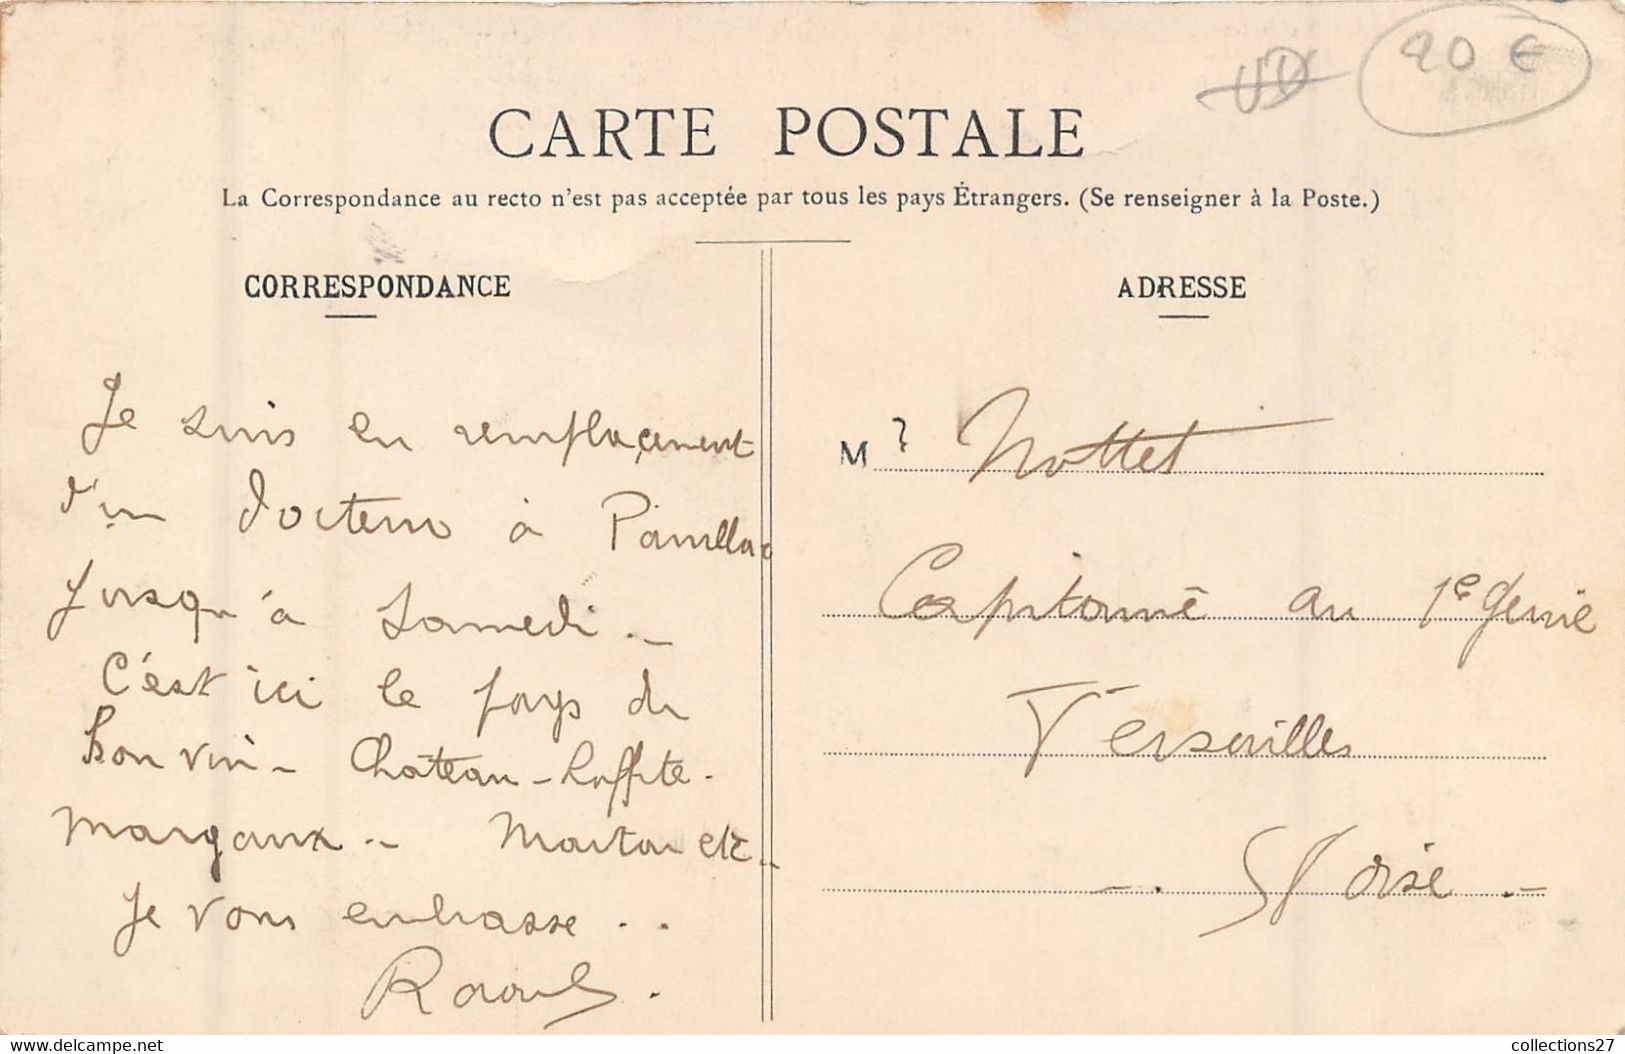 90 €
CARTE POSTALE
La Correspondance au recto n'est pas acceptée par tous les pays Étrangers. (Se renseigner à la Poste.)
CORRESPONDANCE
Je suis en remplaçement
d'un docteur à Pauillac
jusqu'à Samedi.
C'est ici le pays du
bon vin - Château-Laffite.
Margaux.. Mouton etc..
Je vous embrasse..
Raoul.
ADRESSE
M r Nottet
Capitaine au 1e Génie
Versailles
S/ Oise
collections27